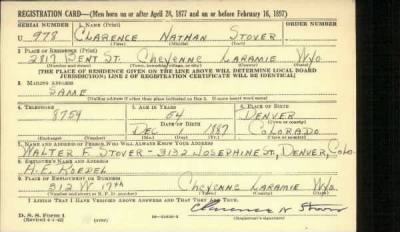 REGISTRATION CARD—(Men born on or after April 28, 1877 and on or before February 16, 1897)
SERIAL NUMBER 1. NAME (Print)
U 978 CLARENCE NATHAN STOVER
(First) (Middle) (Last)
2. PLACE OF RESIDENCE (Print)
2817 BENT ST. CHEYENNE LARAMIE WYO
(Number and street) (Town, township, village, or city) (County) (State)
[THE PLACE OF RESIDENCE GIVEN ON THE LINE ABOVE WILL DETERMINE LOCAL BOARD
JURISDICTION; LINE 2 OF REGISTRATION CERTIFICATE WILL BE IDENTICAL]
3. MAILING ADDRESS
SAME
[Mailing address if other than place indicated on line 2. If same insert word same]
4. TELEPHONE 5. AGE IN YEARS 6. PLACE OF BIRTH
8759 54 DENVER
DATE OF BIRTH (Town or county)
DEC 1887 COLORADO
(Exchange) (Number) (Mo.) (Day) (Yr.) (State or country)
7. NAME AND ADDRESS OF PERSON WHO WILL ALWAYS KNOW YOUR ADDRESS
WALTER F. STOVER - 3132 JOSEPHINE ST, DENVER, COLO.
8. EMPLOYER'S NAME AND ADDRESS
A. E. ROEDEL
9. PLACE OF EMPLOYMENT OR BUSINESS
512 W 17th CHEYENNE LARAMIE WYO.
(Number and street or R. F. D. number) (Town) (County) (State)
I AFFIRM THAT I HAVE VERIFIED ABOVE ANSWERS AND THAT THEY ARE TRUE.
D. S. S. Form 1
(Revised 4-1-42) (over) Clarence N Stover
(Registrant's signature)